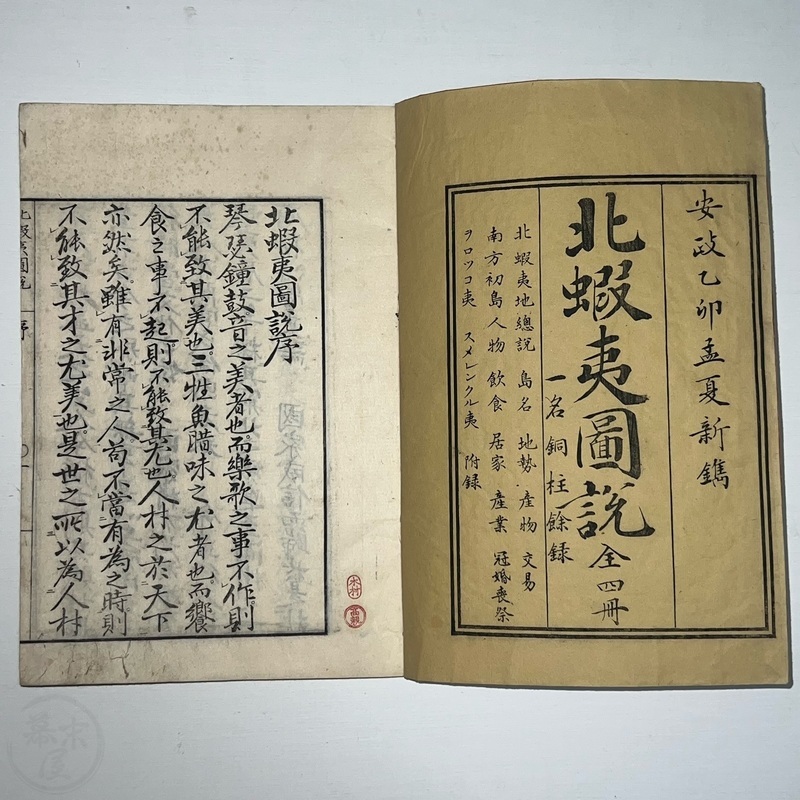 安政乙卯孟夏新鐫
北蝦夷圖說 全四冊
一名 銅柱餘録
北蝦夷地總説 島名 地勢 産物 交易
南方初島人物 飲食 居家 産業 冠婚喪祭
ヲロツコ夷 スメレンクル夷 附録
北蝦夷圖說序
琴瑟鐘鼓音之美者也而樂歌之事不作則
不能致其美也三牲魚腊味之尤者也而饗
食之事不起則不能致其尤也人材之於天下
亦然矣雖有非常之人苟不當有為之時則
不能致其才之尤美也是世之所以為人材
北蝦夷圖說 序
木村